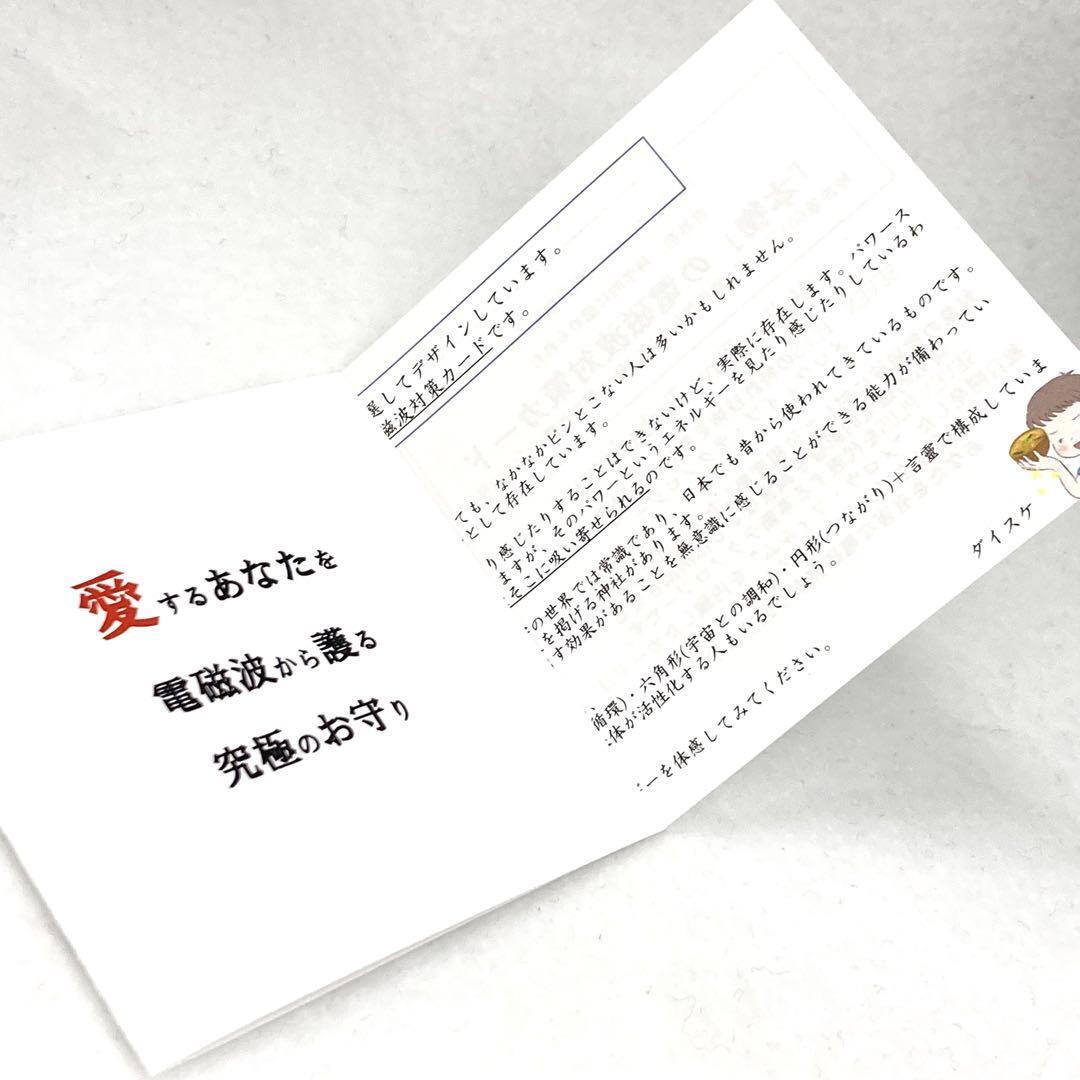 愛するあなたを
電磁波から護る
究極のお守り
選してデザインしています。
磁波対策カードです。
ても、なかなかピンとこない人は多いかもしれません。
として存在しています。
り感じたりすることはできないけど、実際に存在します。パワース
ますが、そのパワーというエネルギーを見たり感じたりしているわ
そこに吸い寄せられるのです。
の世界では常識であり、日本でも昔から使われてきているものです。
を掲げる神社があります。
す効果があることを無意識に感じることができる能力が備わってい
循環)・六角形(宇宙との調和)・円形(つながり)+言霊で構成していま
体が活性化する人もいるでしょう。
ーを体感してみてください。
ダイスケ